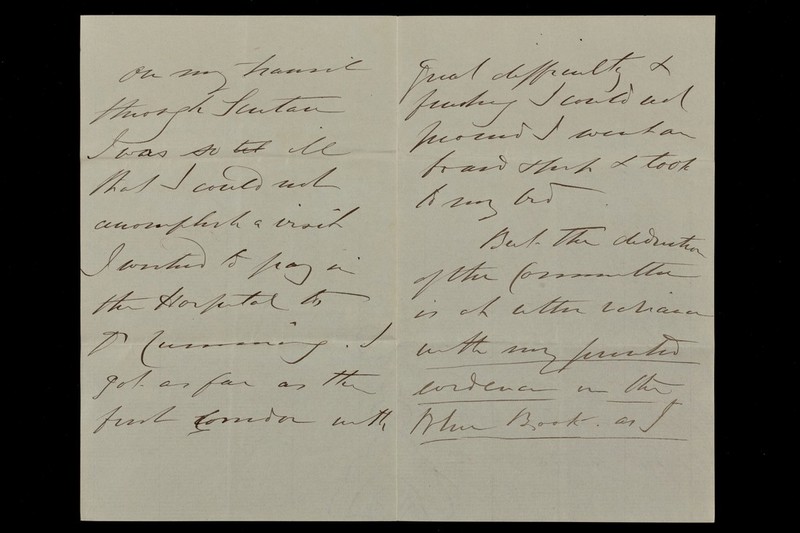 on my transit
through Scutari
I was so ill
that I could not
accomplish a visit
I wished to pay in
the Hospital to
Dr Cumming. I
got as far as the
first Corridor with
great difficulty &
finding I could not
proceed I went on
board ship & took
to my bed
But the deduction
of the Committee
is at utter variance
with my printed
evidence in the
Blue Book. as I